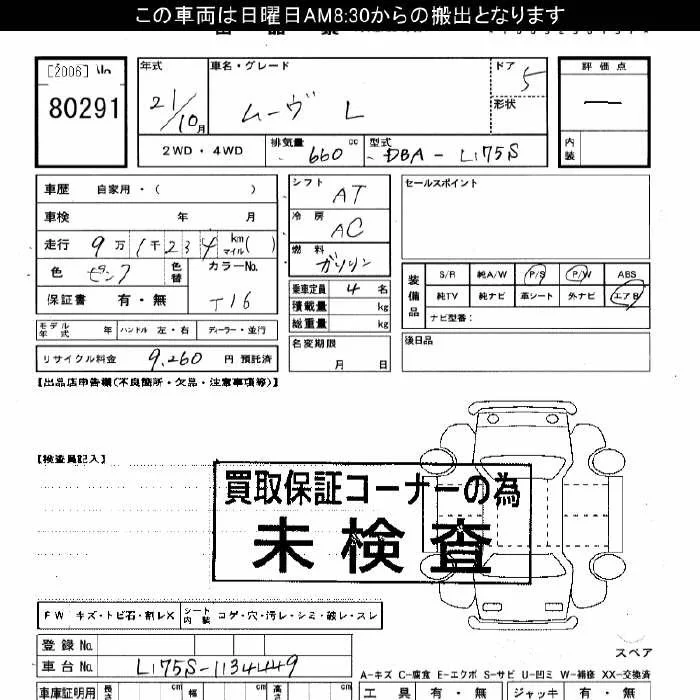 この車両は日曜日AM8:30からの搬出となります
[2006] No
80291
年式 車名・グレード ドア 5 評価点
21/10月 ムーヴ L 形状 —
2WD・4WD 排気量 660 cc 型式 DBA-L175S 内装
車歴 自家用・( )
車検 年 月
走行 9万1千234 km マイル( )
色 色替 カラーNo.
保証書 有・無 T16
モデル年式 年 ハンドル 左・右 ディーラー・並行
リサイクル料金 9,260 円 預託済
シフト AT
冷房 AC
燃料 ガソリン
乗車定員 4 名
積載量 kg
総重量 kg
名変期限
月 日
セールスポイント
装備品 S/R 純A/W P/S P/W ABS
純TV 純ナビ 革シート 外ナビ エアB
ナビ型番:
後日品
【出品店申告欄(不良箇所・欠品・注意事項等)】
【検査員記入】
買取保証コーナーの為
未検査
FW キズ・トビ石・割レX シート内装 コゲ・穴・汚レ・シミ・破レ・スレ
登録No.
車台No. L175S-1134449
スペア
A-キズ C-腐食 E-エクボ S-サビ U-凹ミ W-補修 XX-交換済
車庫証明用 長さ cm 幅 cm 高さ cm
工具 有・無 ジャッキ 有・無